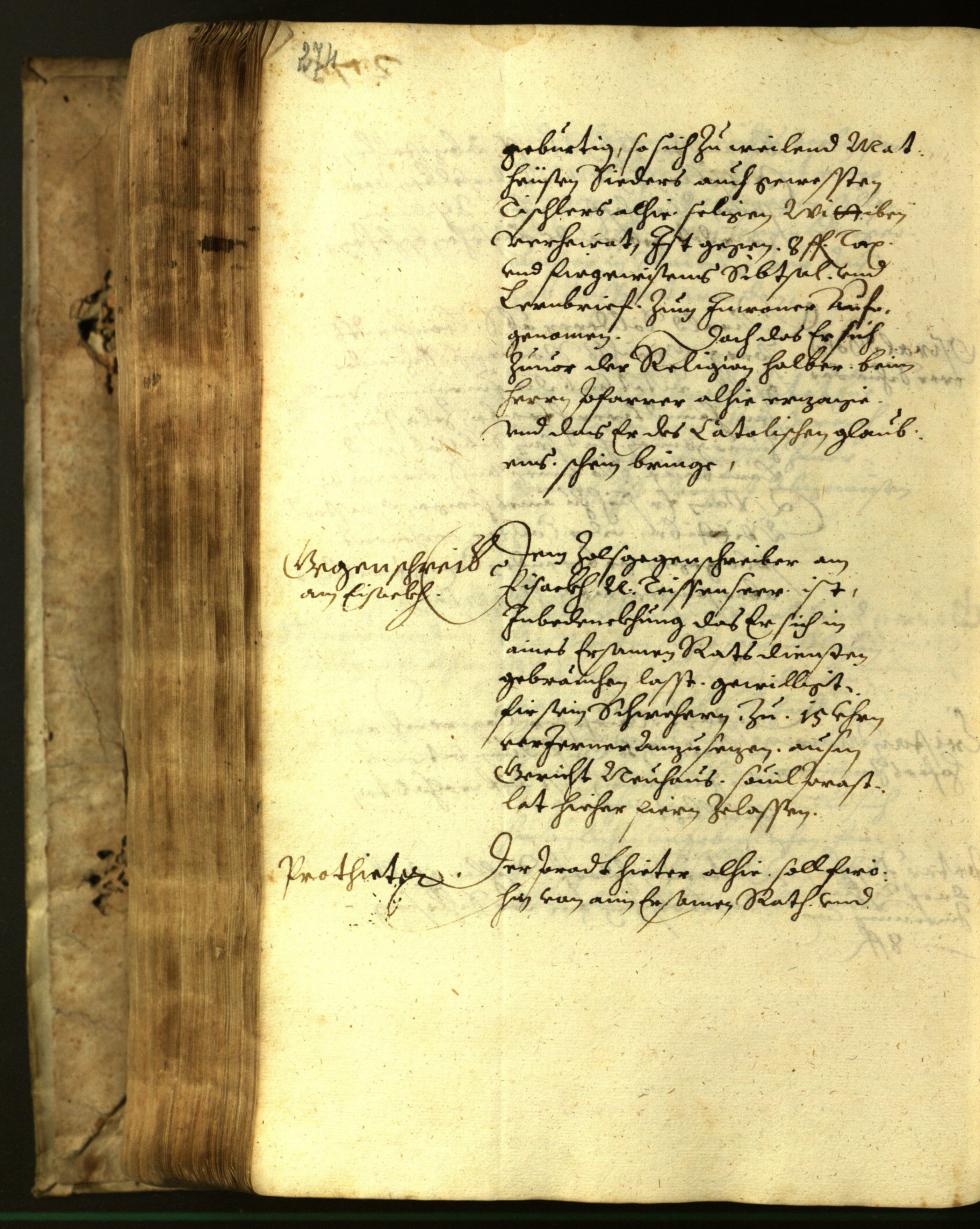 274
gebürtig, so sich zu weilend Mat-
heüsen Sieders auch gewessten
Tischlers alhie seligen Wittiben
verheirat, Ist gegen 8 ff. Tax
vnd firgewisens Sibtsal vnd
Lernbrief zum Inwoner Aufge-
genomen. Doch das Er sich
Zuuor der Religion halber beim
herrn Pfarrer alhie erzaige
vnd das Er des Catolischen glaub-
ens schein bringe,
Gegenschreiber
am Eisackh.
Dem Zolsgegenschreiber am
Eisackh N. Teissenseer ist,
In bedenckhung das Er sich in
aines Ersamen Rats diensten
gebrauchen lasst gewilligt,
fir sein Schwehern zu 15 Yhrn
aus m
Gericht Neuhaus souil
hieher fiern Zelassen.
Prothieter.
Der Prodthieter alhie soll firo-
hin von aim Ersamen Rath vnd